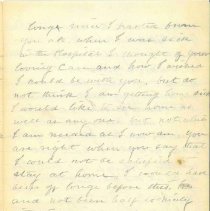 longer since I parted from
you ask when I was sick
in the Hospital I thought of your
loving care and how I wished
I could be with you, but do
not think I am getting home sick
I would like to see home as
well as any one but not while
I am needed as I now am, you
are right when you say that
I could not be satisfied to
stay at home, I would have
been of longe before this,
and not been half so nicely